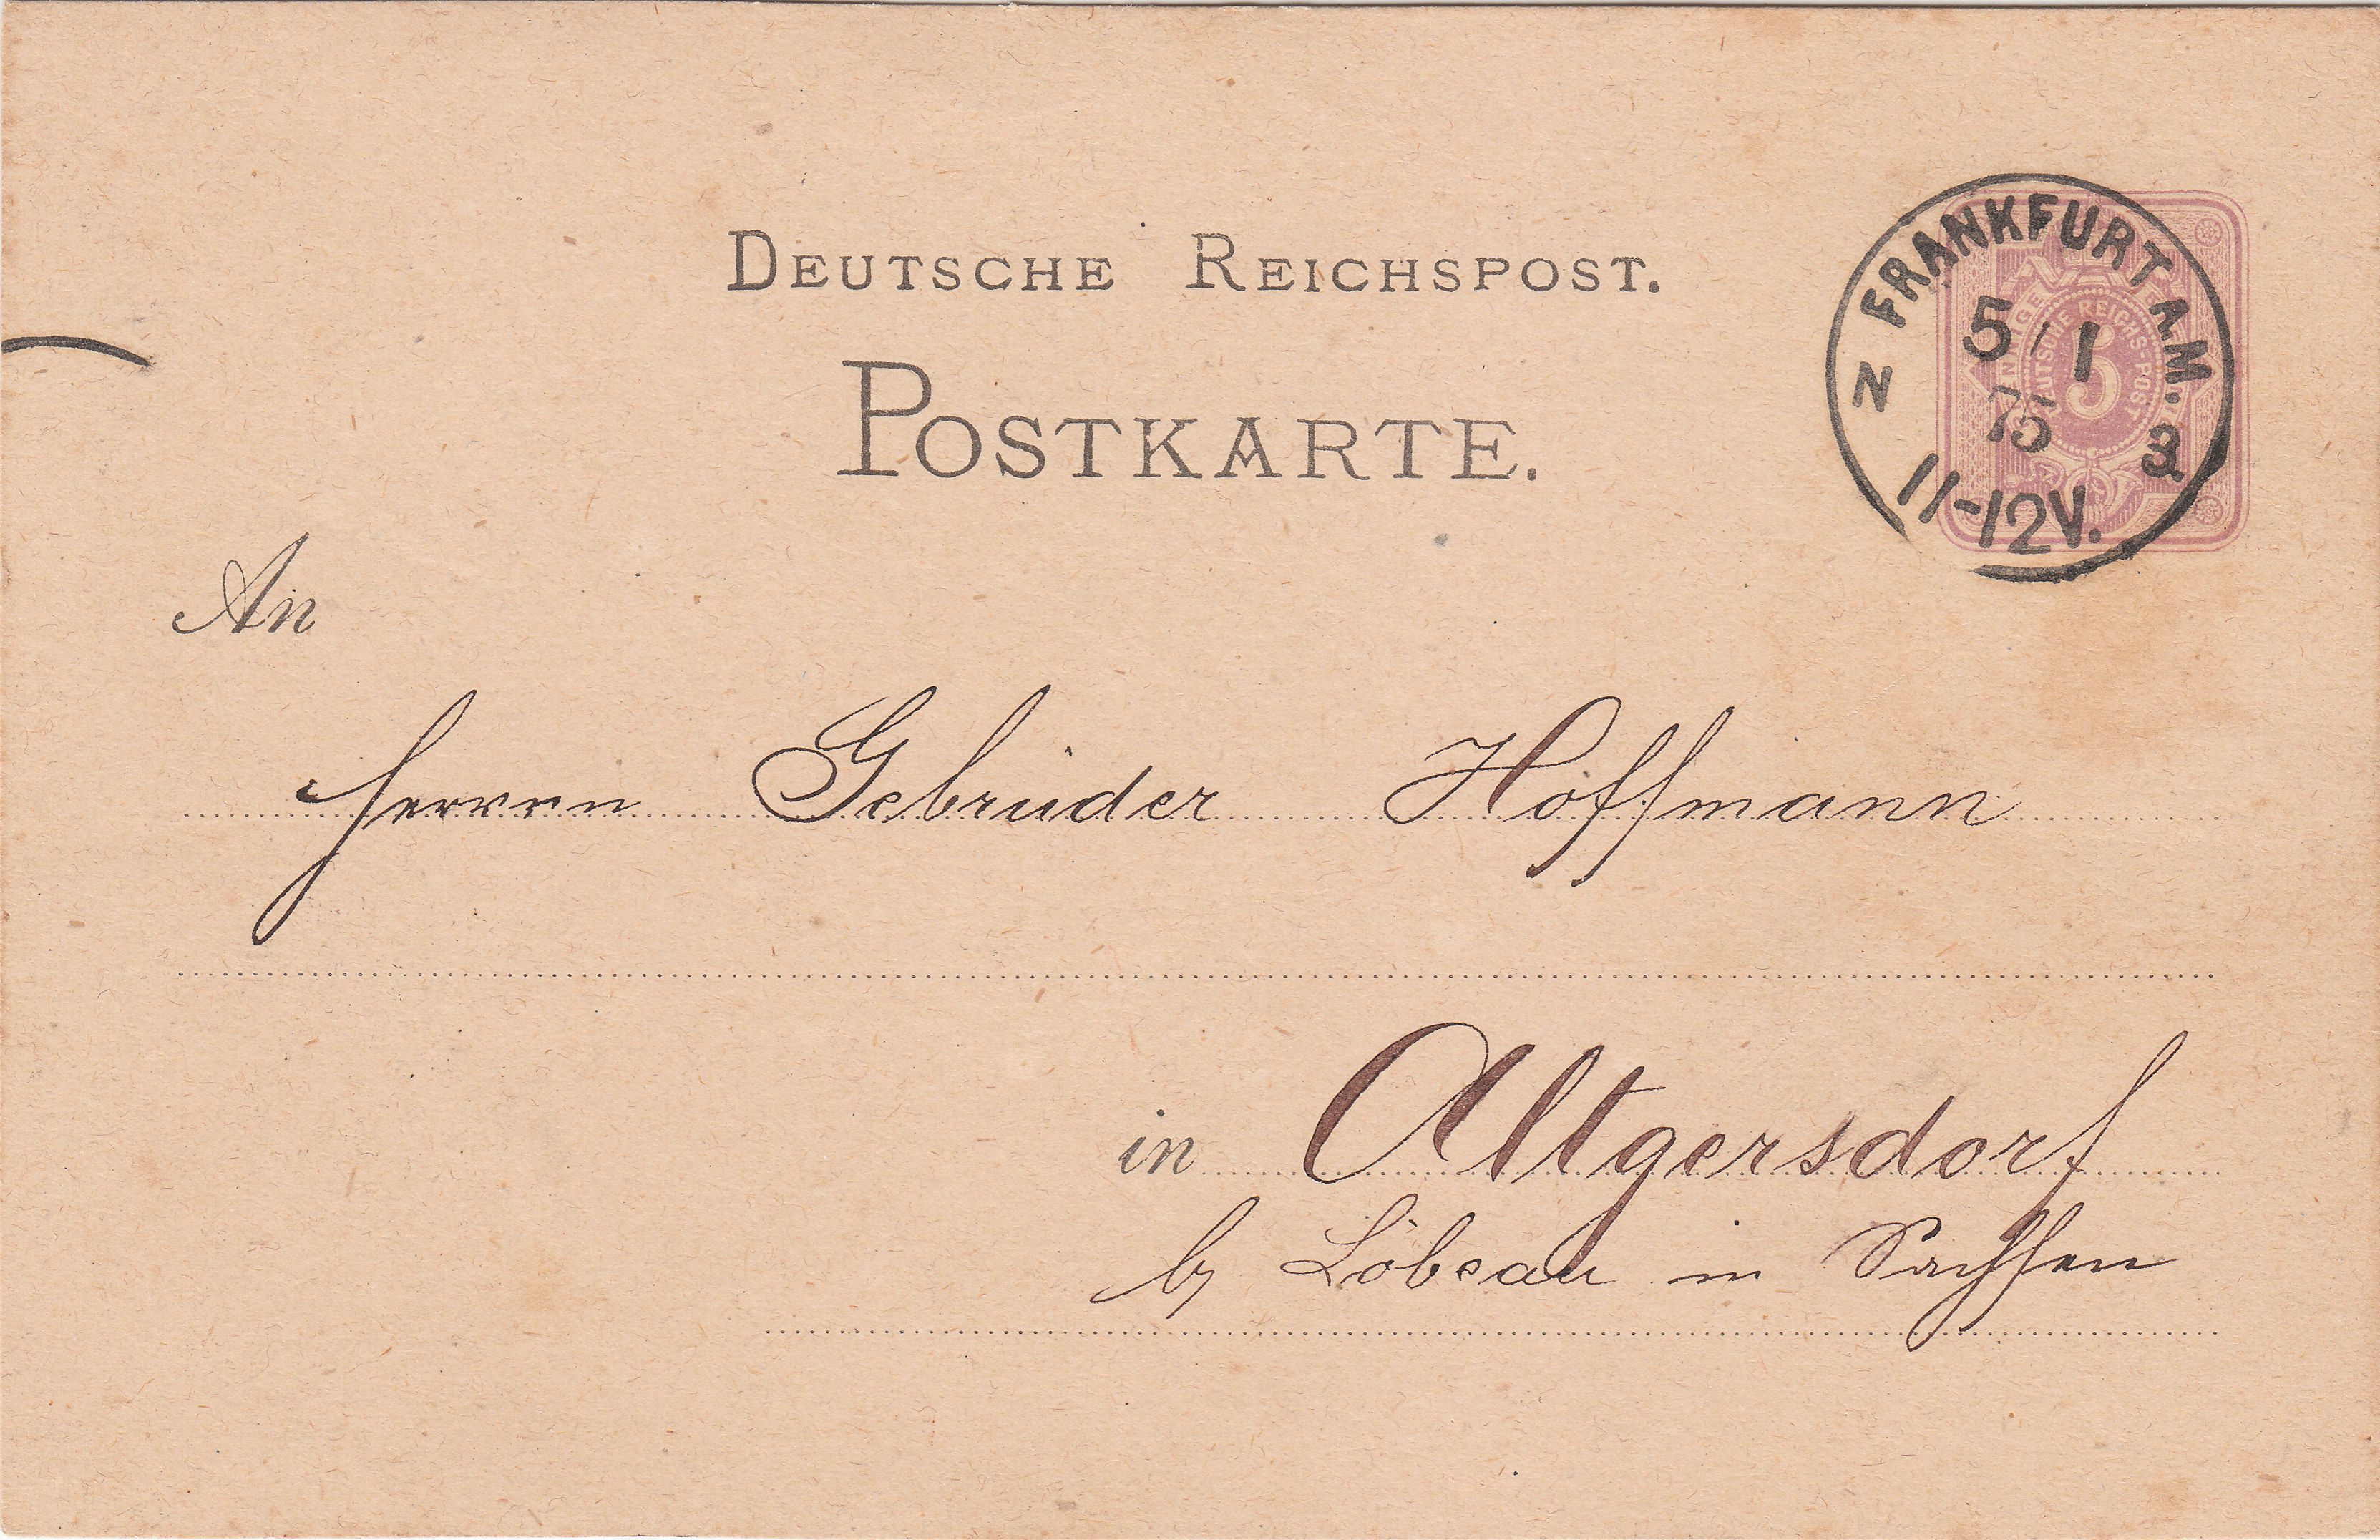 DEUTSCHE REICHSPOST.
POSTKARTE.
FRANKFURT A.M.
5 / 1
75
N 3
11-12V.
DEUTSCHE REICHS-POST
5
An
Herren Gebrüder Hoffmann
in Altgersdorf
b/ Löbeau in Sachsen